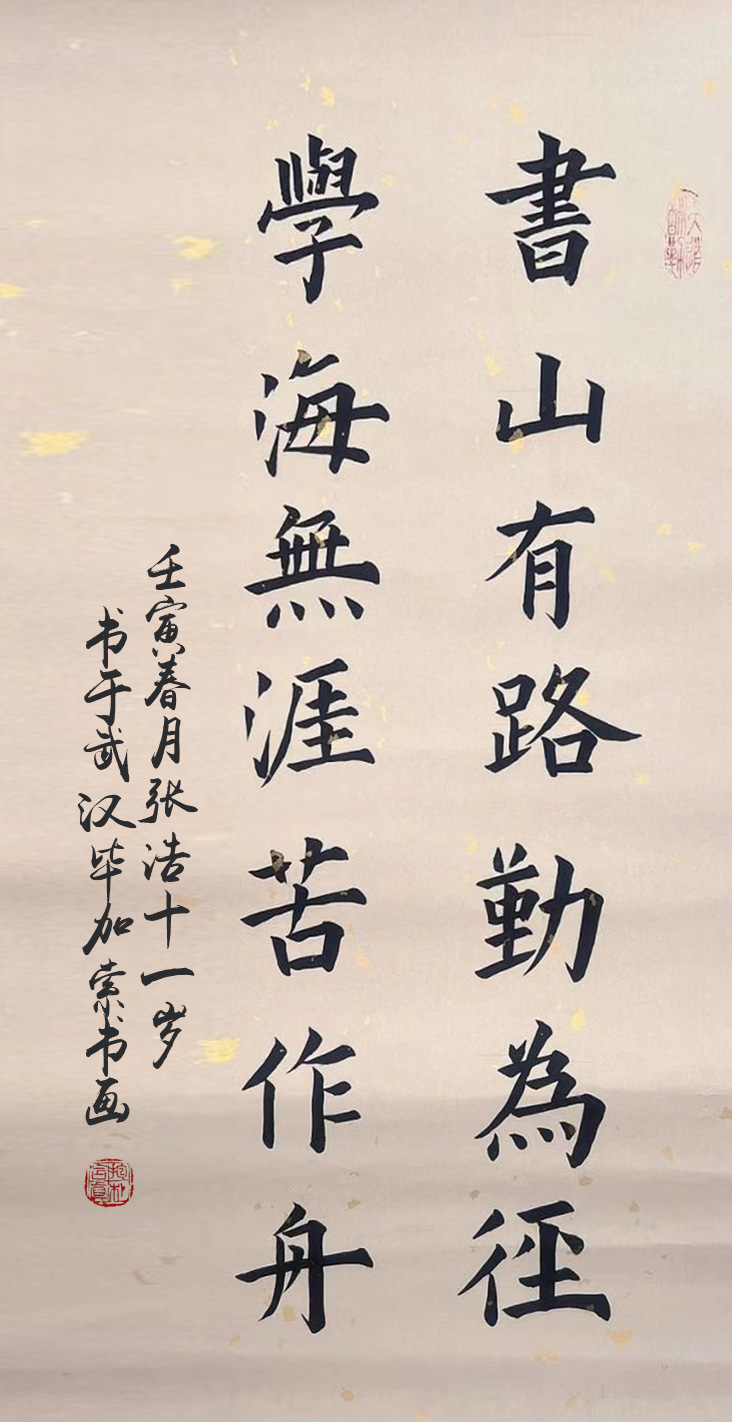 書山有路勤為徑
學海無涯苦作舟
壬寅春月张浩十一岁
书于武汉毕加索书画